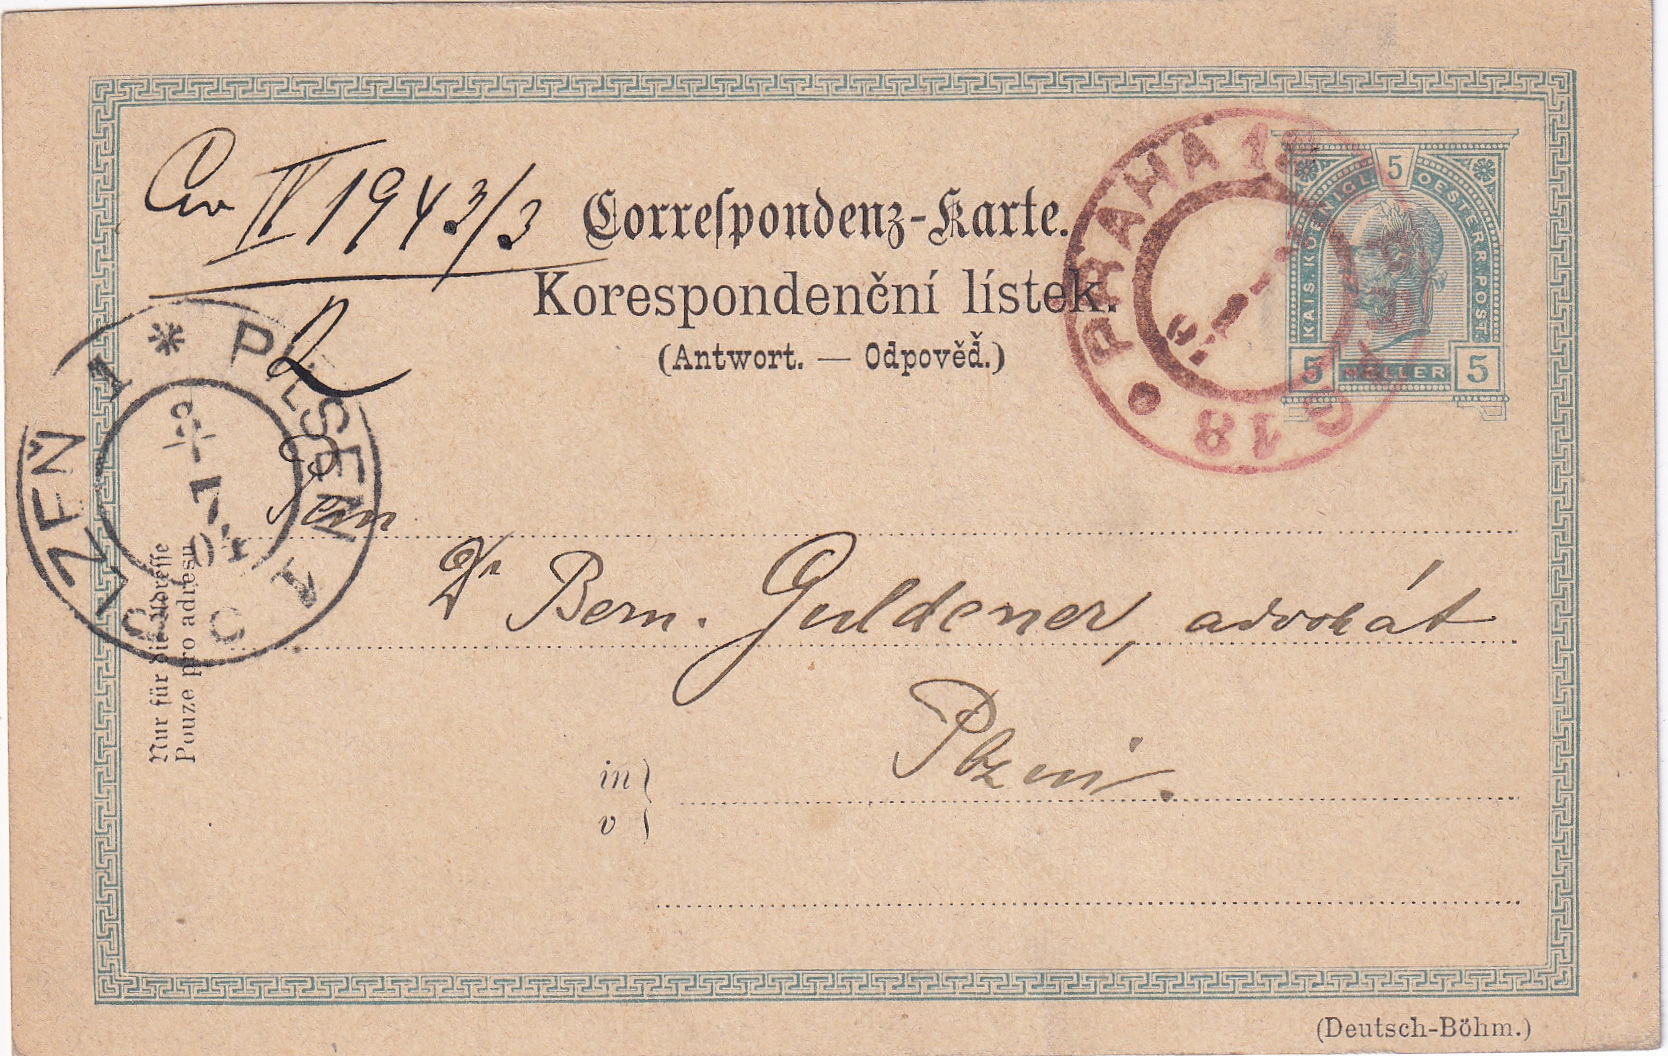 IV 1943/3
Correſpondenz-Karte.
Korespondenční lístek.
(Antwort. — Odpověď.)
2
PRAHA 18
PRAG 18
5
KAIS. KOENIGL. OESTERR. POST
5 HELLER 5
PILSEN 1
PLZEŇ 1
7
04
Pan
Dr Bern. Guldener, advokát
Plzni.
in
v
Nur für die Adreſſe
Pouze pro adresu
(Deutsch-Böhm.)